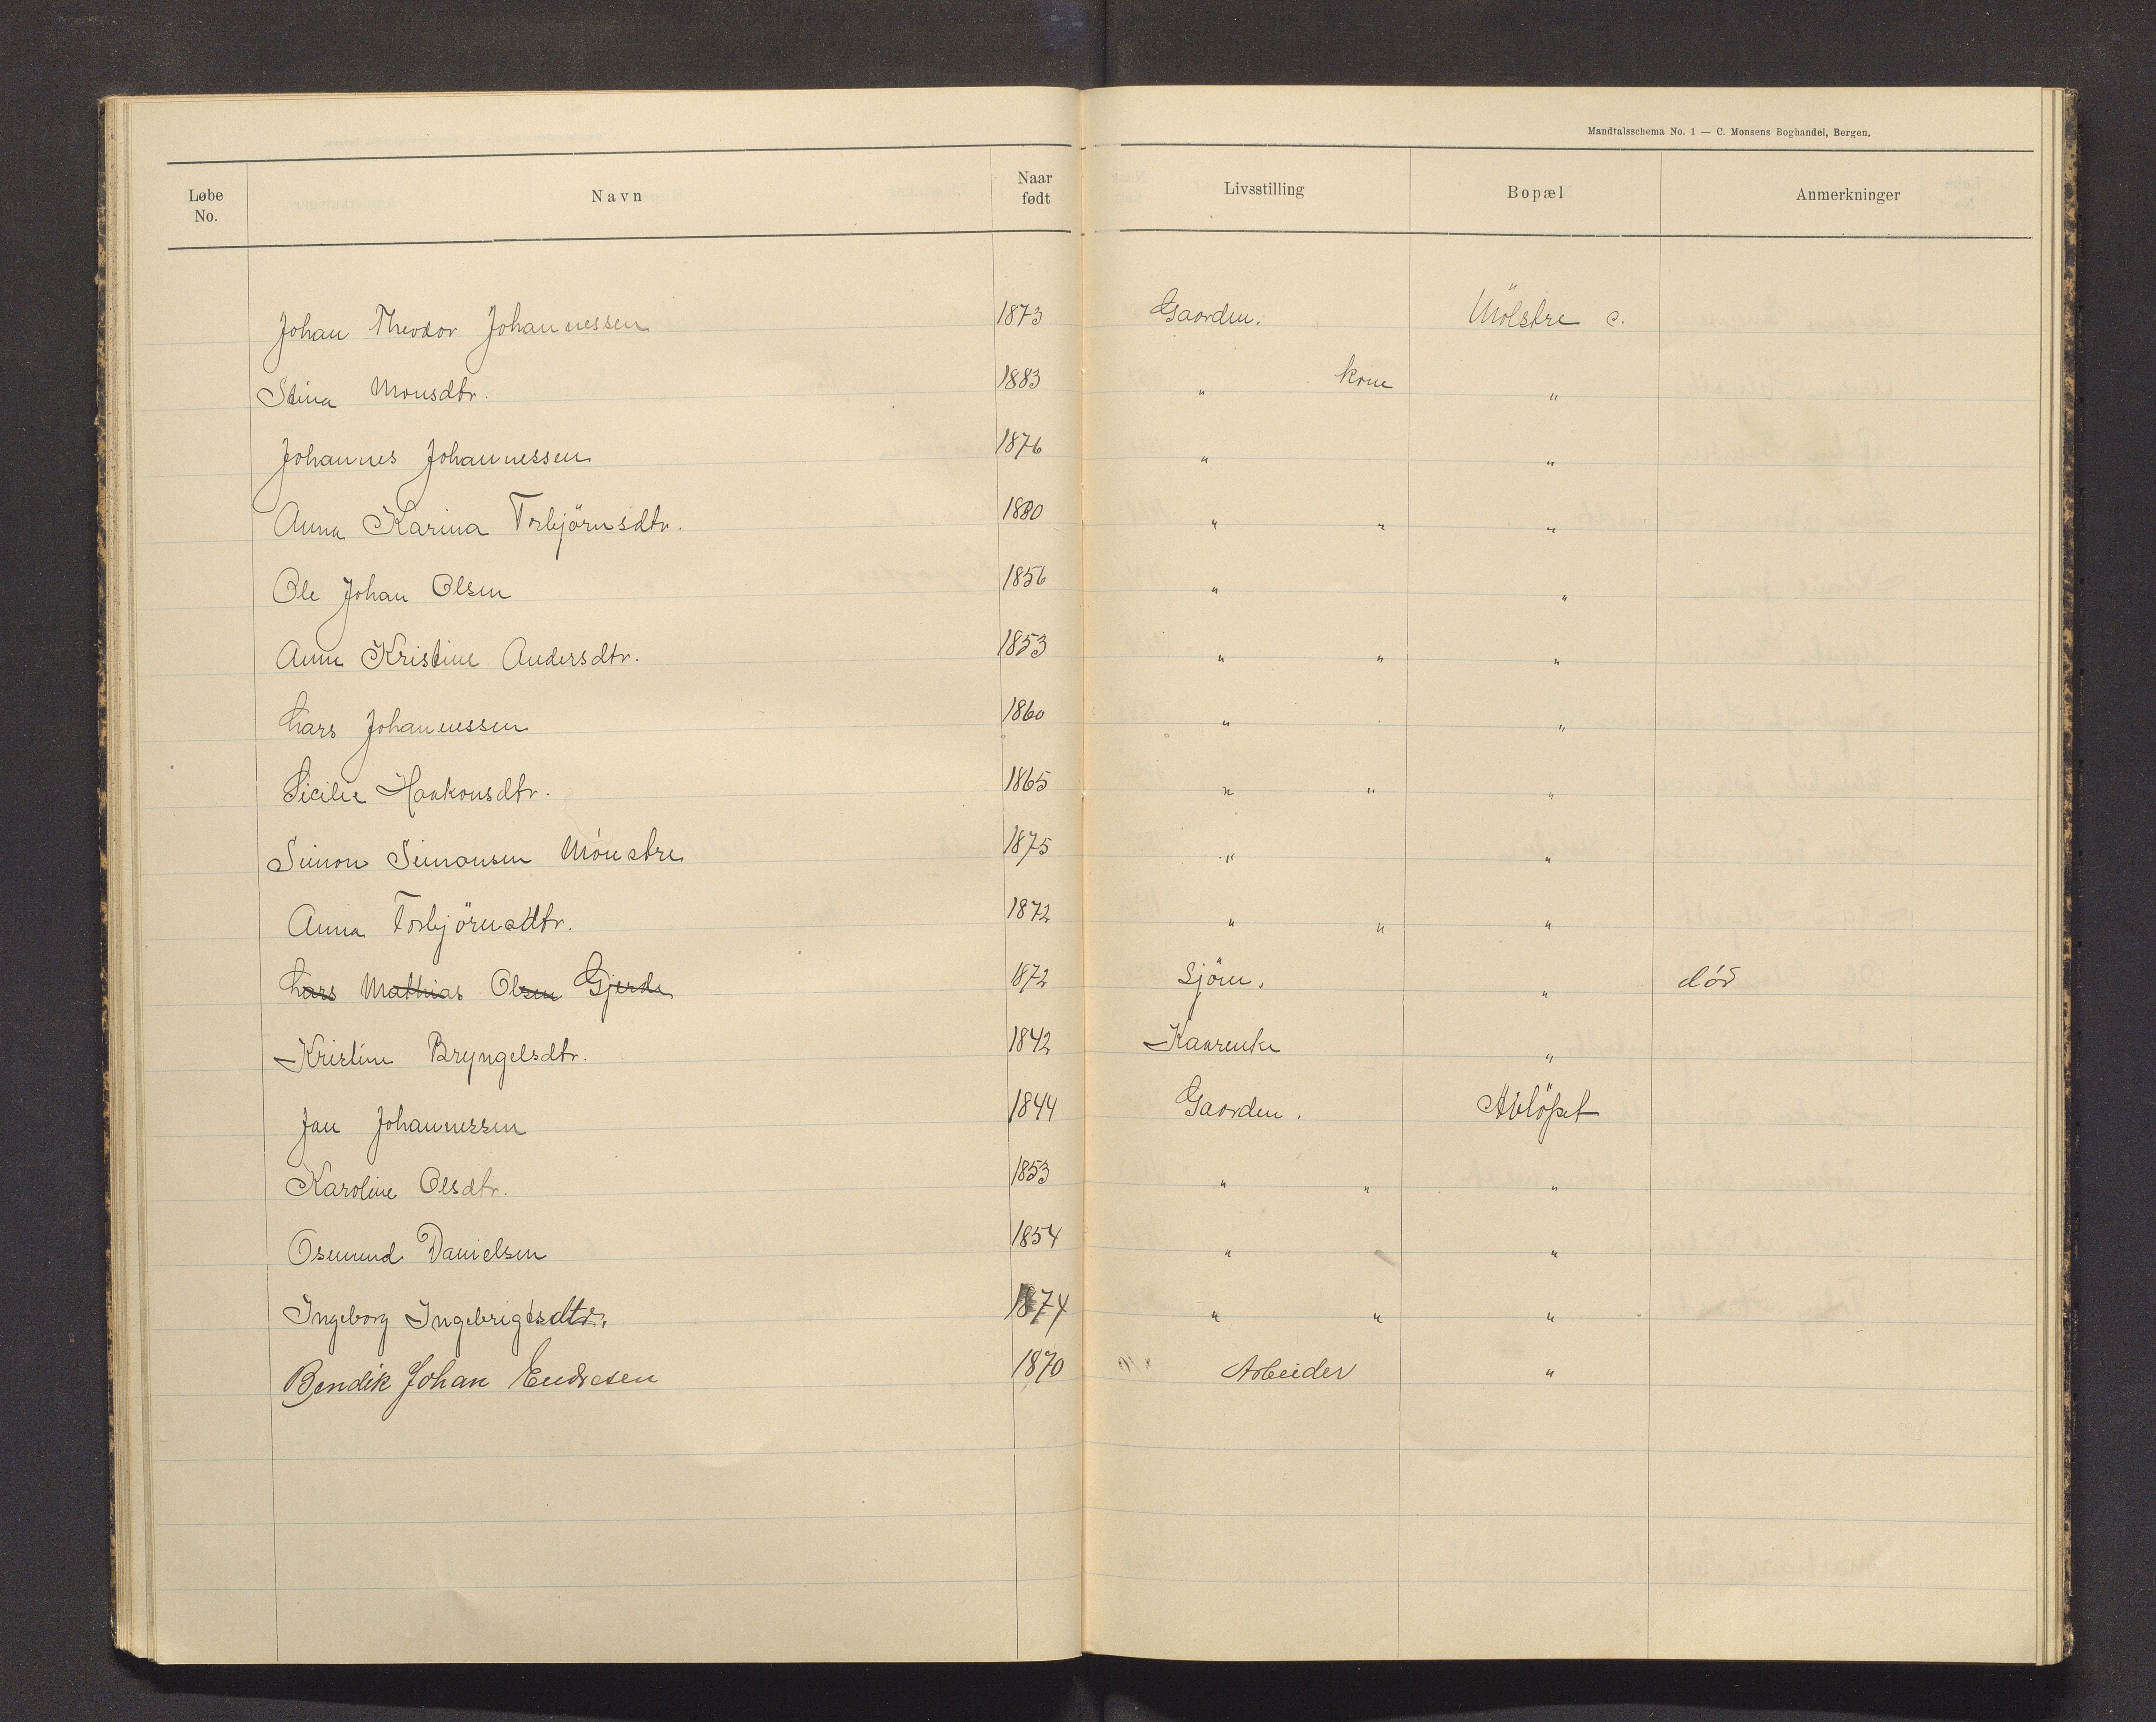 Mandtalsschema No. 1 — C. Monsens Boghandel, Bergen.
Løbe No. Navn Naar født Livsstilling Bopæl Anmerkninger
Johan Theodor Johannessen 1873 Gaarden. Mölstre c.
Stina Monsdtr. 1883 " kone "
Johannes Johannessen 1876 " "
Anna Karina Torbjörnsdtr. 1880 " " "
Ole Johan Olsen 1856 " "
Anne Kristine Andersdtr. 1853 " " "
Lars Johannessen 1860 " "
Sicilie Haakonsdtr. 1865 " " "
Simon Simonsen Mönstre 1875 " "
Anna Torbjörnsdtr. 1872 " " "
Lars Mathias Olsen Gjerde 1872 Sjöm. " död
Kristine Bryngelsdtr. 1842 Kaarenke "
Jan Johannessen 1844 Gaarden. Avlöpet
Karoline Olsdtr. 1853 " " "
Osmund Danielsen 1854 " "
Ingeborg Ingebrigtsdtr. 1874 " " "
Bendik Johan Endresen 1870 Arbeider "